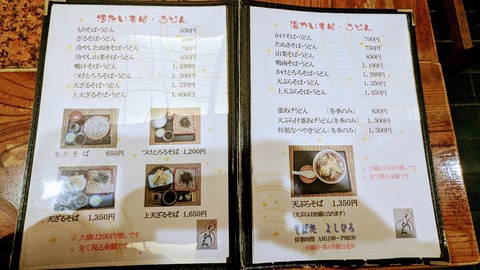 冷たいそば・うどん
もりそば・うどん 650円
ざるそば・うどん 700円
冷やしたぬきそば・うどん 750円
冷やし山菜そば・うどん 850円
鴨汁そば・うどん 1,100円
つけとろろそば・うどん 1,200円
天ざるそば・うどん 1,350円
上天ざるそば・うどん 1,650円
もりそば 650円
つけとろろそば 1,200円
天ざるそば 1,350円
上天ざるそば 1,650円
※ 大盛は200円増しです
※ 全て税込金額です
温かいそば・うどん
かけそば・うどん 700円
たぬきそば・うどん 750円
山菜そば・うどん 850円
鴨南そば・うどん 1,100円
かけとろろそば・うどん 1,200円
天ぷらそば・うどん 1,350円
上天ぷらそば・うどん 1,650円
釜あげうどん (冬季のみ) 850円
天ぷら付釜あげうどん (冬季のみ) 1,500円
特製なべやきうどん (冬季のみ) 1,500円
天ぷらそば 1,350円
(天ぷらは別盛になります)
※ 大盛は200円増しです
※ 全て税込金額です
そば処 よしひろ
営業時間 AM11:00～PM8:30
火曜日・第4月曜日定休